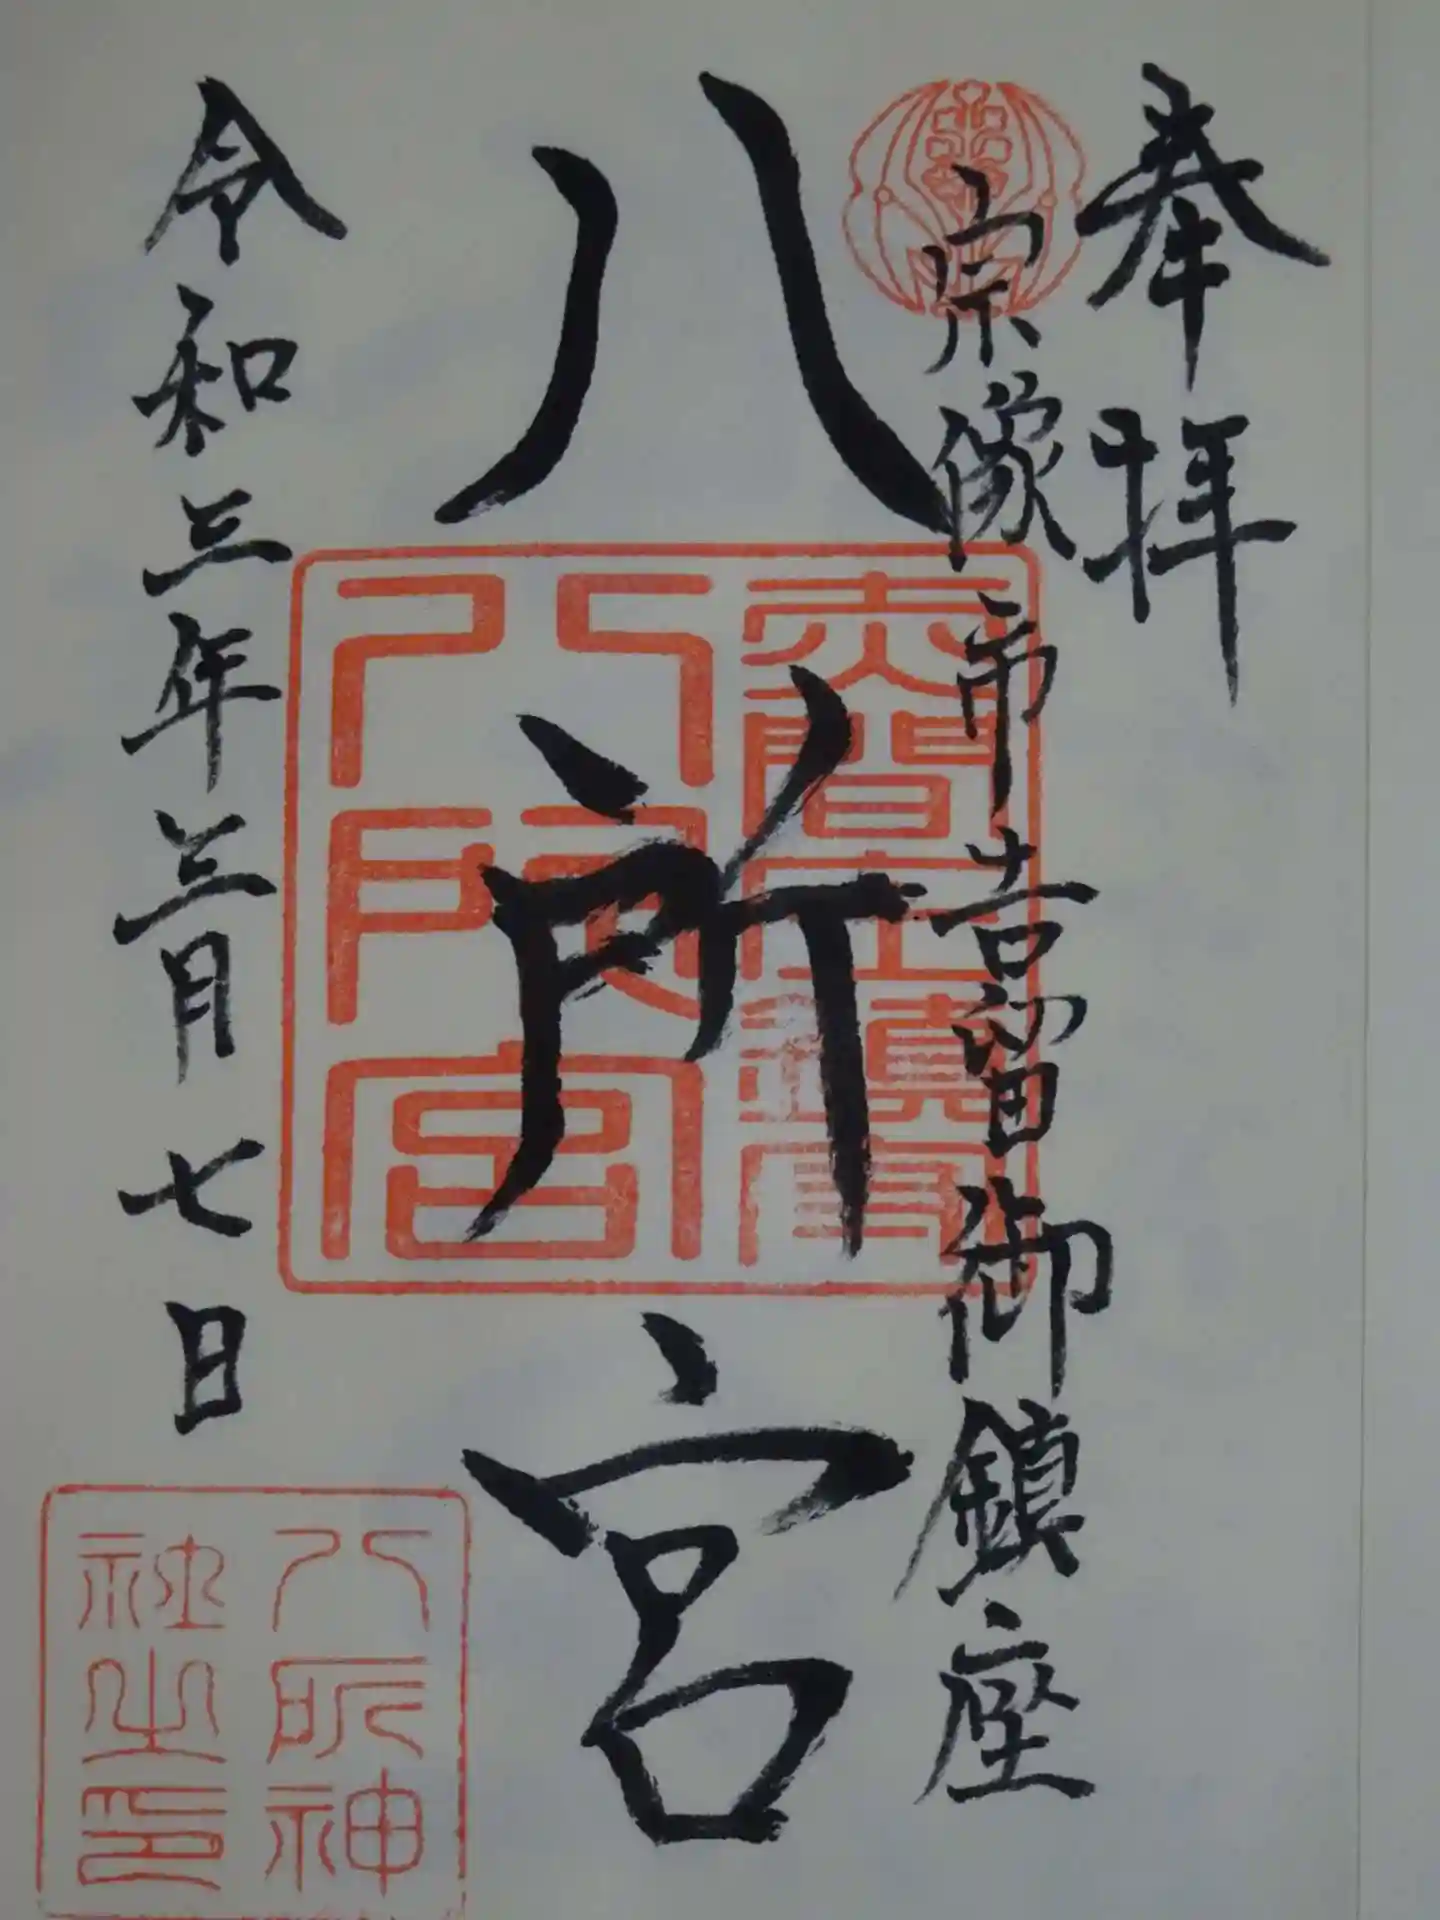 奉拝
宗像市吉留御鎮座
八所宮
令和三年三月七日
赤間庄鎮守
八所宮
八所神
社之印